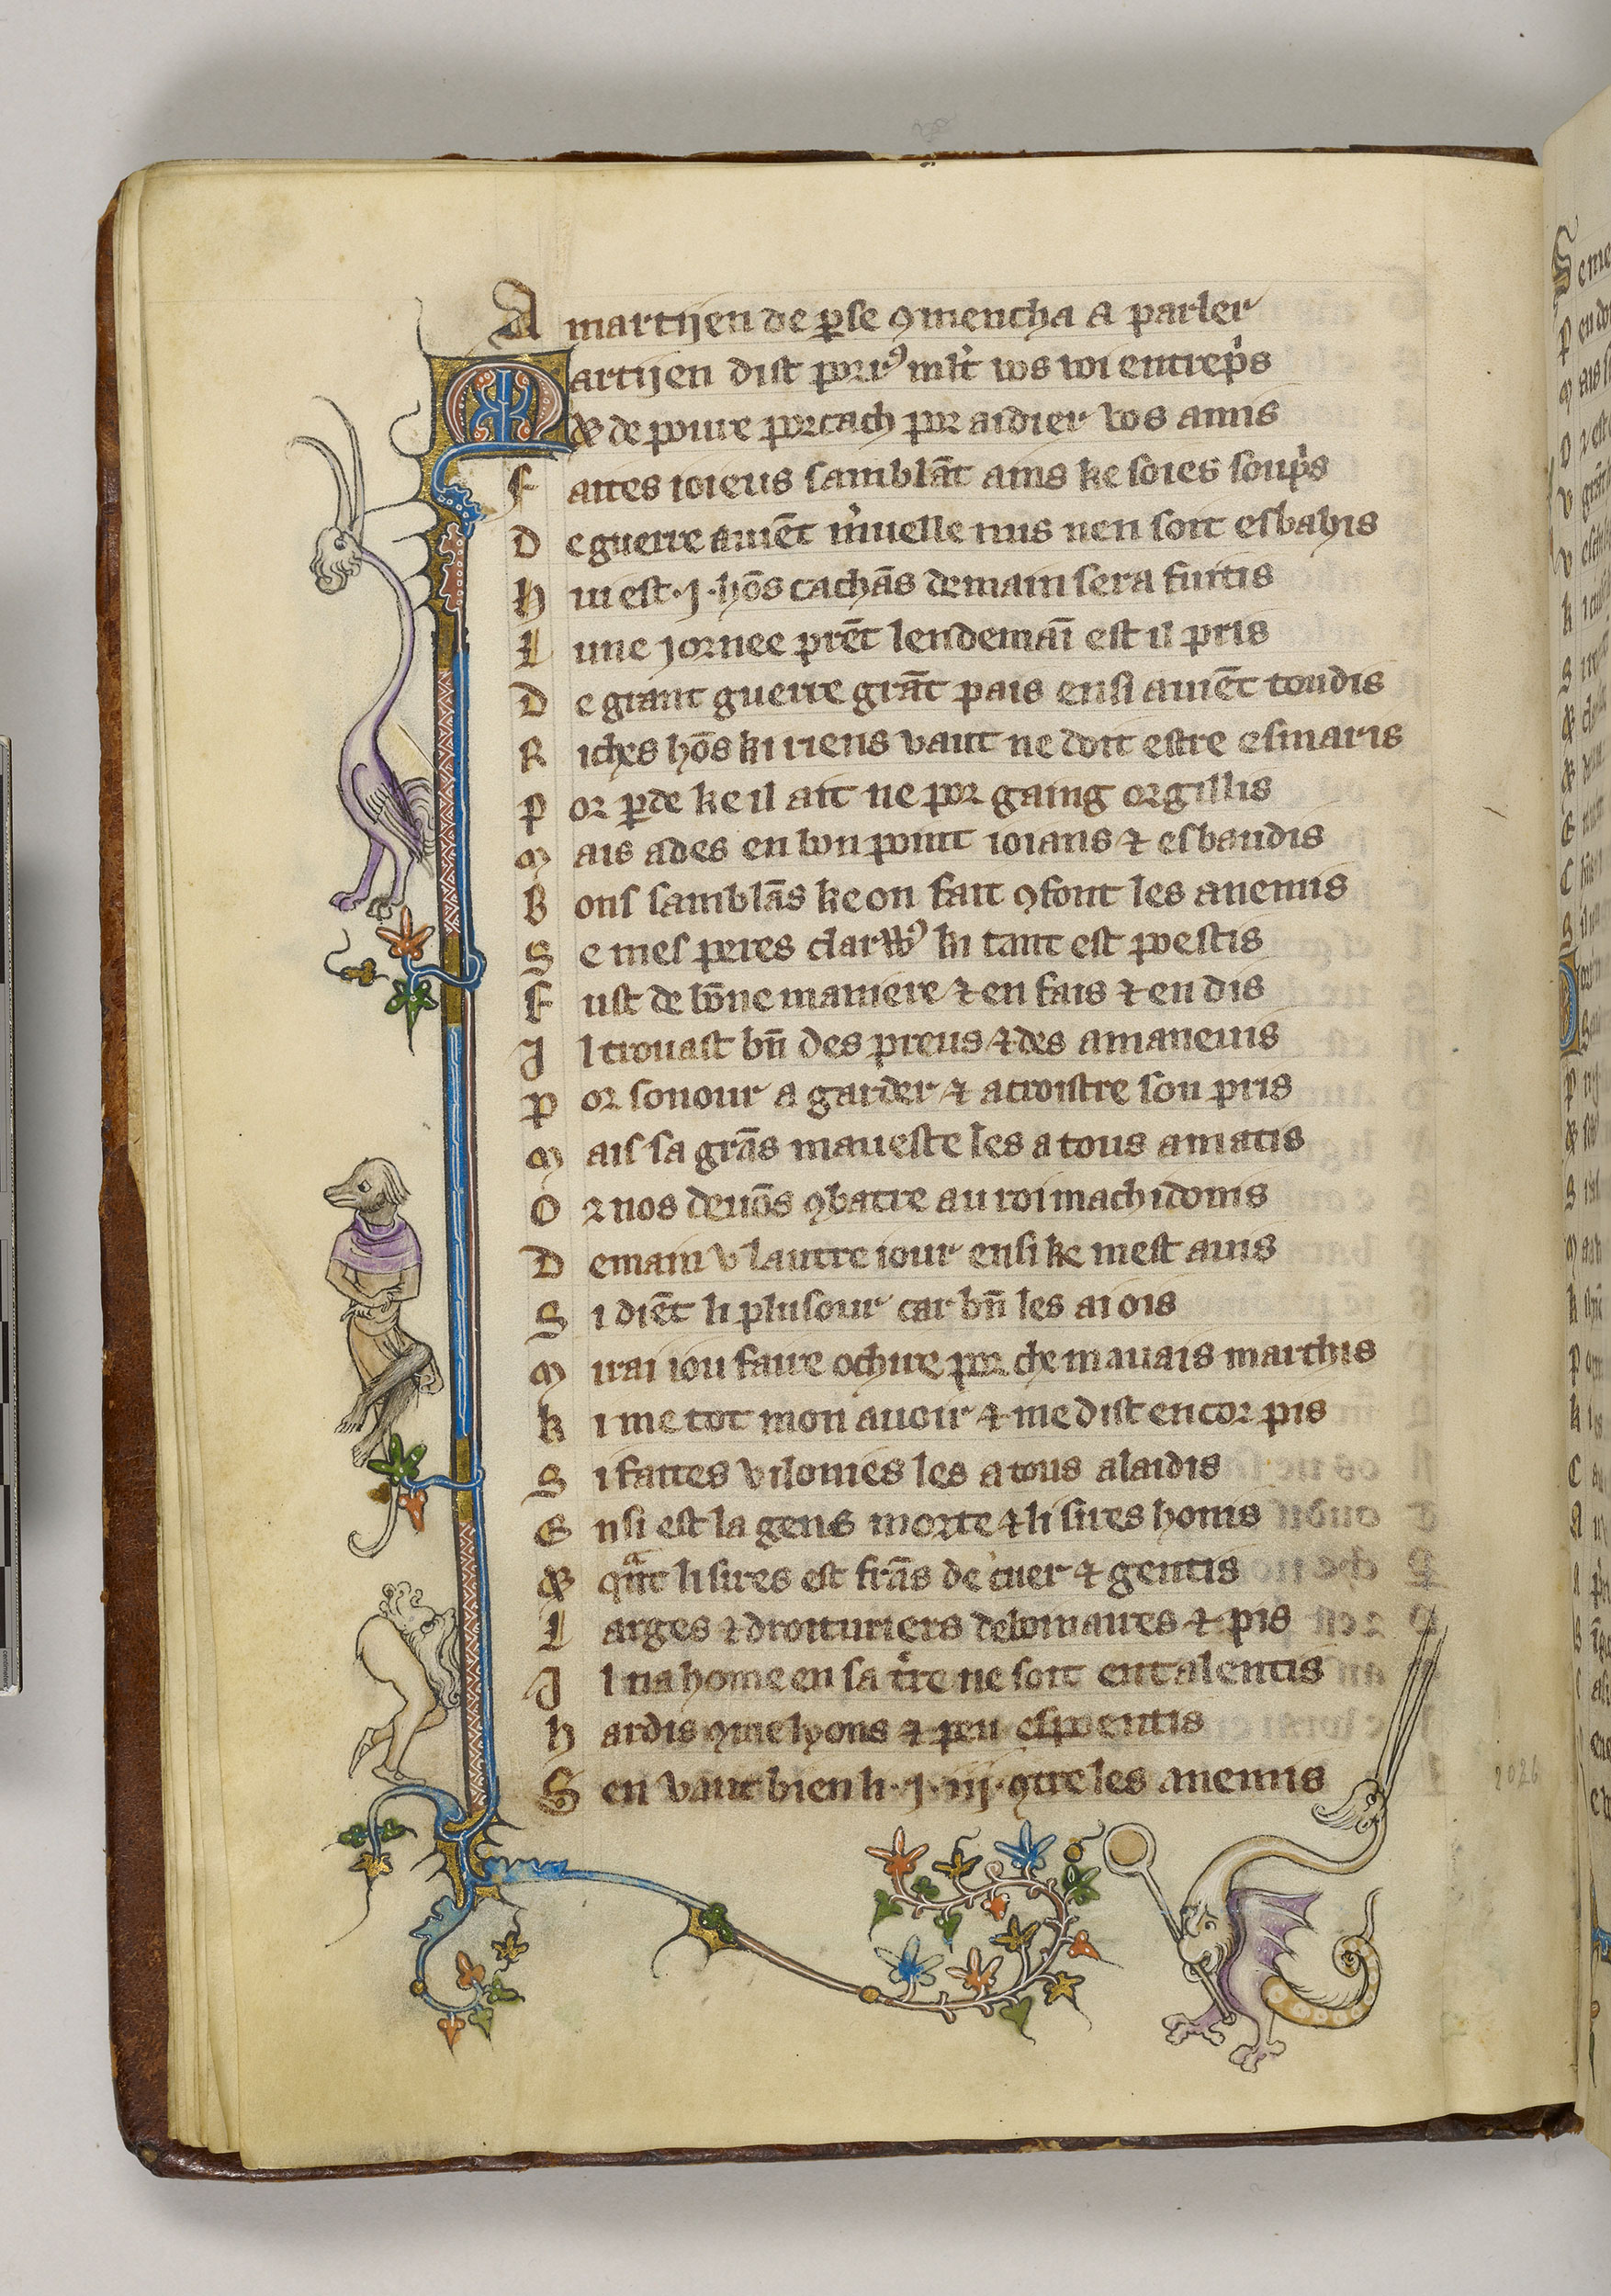 A martijen de ꝑse ꝯmencha a parler
Martijen dist porrꝰ mlt̾ vos voi entrep̾s
& de poure porcach por aidier vos amis
F aites ioieus samblāt ains ke soies soup̾s
D e guerre auiēt m̾uelle nus nen soit esbahis
H ui est .j. hōs cachās demain sera fuitis
L une jornee prēt lendemaī est il pris
D e grant guerre grāt pais ensi auiēt toudis
R iches hōs ki riens vaut ne doit estre esmaris
P or ꝑde ke il ait ne por gaing orgillis
M ais ades en bon point ioians ⁊ esbaudis
B ons samblās ke on fait ꝯfont les anemis
S e mes peres clarvꝰ ki tant est poestis
F ust de bōne maniere ⁊ en fais ⁊ en dis
I l trouast bn̄ des preus ⁊ des amaneuis
P or sonour a garder ⁊ acroistre son pris
M ais sa grās maueste les a tous amatis
O r nos deuōs ꝯbatre au roi machidonis
D emain v lautre iour ensi ke mest auis
S i diēt li plusour car bn̄ les ai ois
M irai iou faire ochire por che mauais marchis
K i me tot mon auoir ⁊ me dist encor pis
S i faites vilonies les a tous alaidis
E nsi est la gens morte ⁊ li sires honis
& qᵃnt li sires est frās de cuer ⁊ gentis
L arges ⁊ droituriers debonaires ⁊ pis
I l na home en sa t̾re ne soit entalentis
H ardis ꝯme lyons ⁊ peu espoentis
S en vaut bien li .j. .iij. ꝯtre les anemis
2026